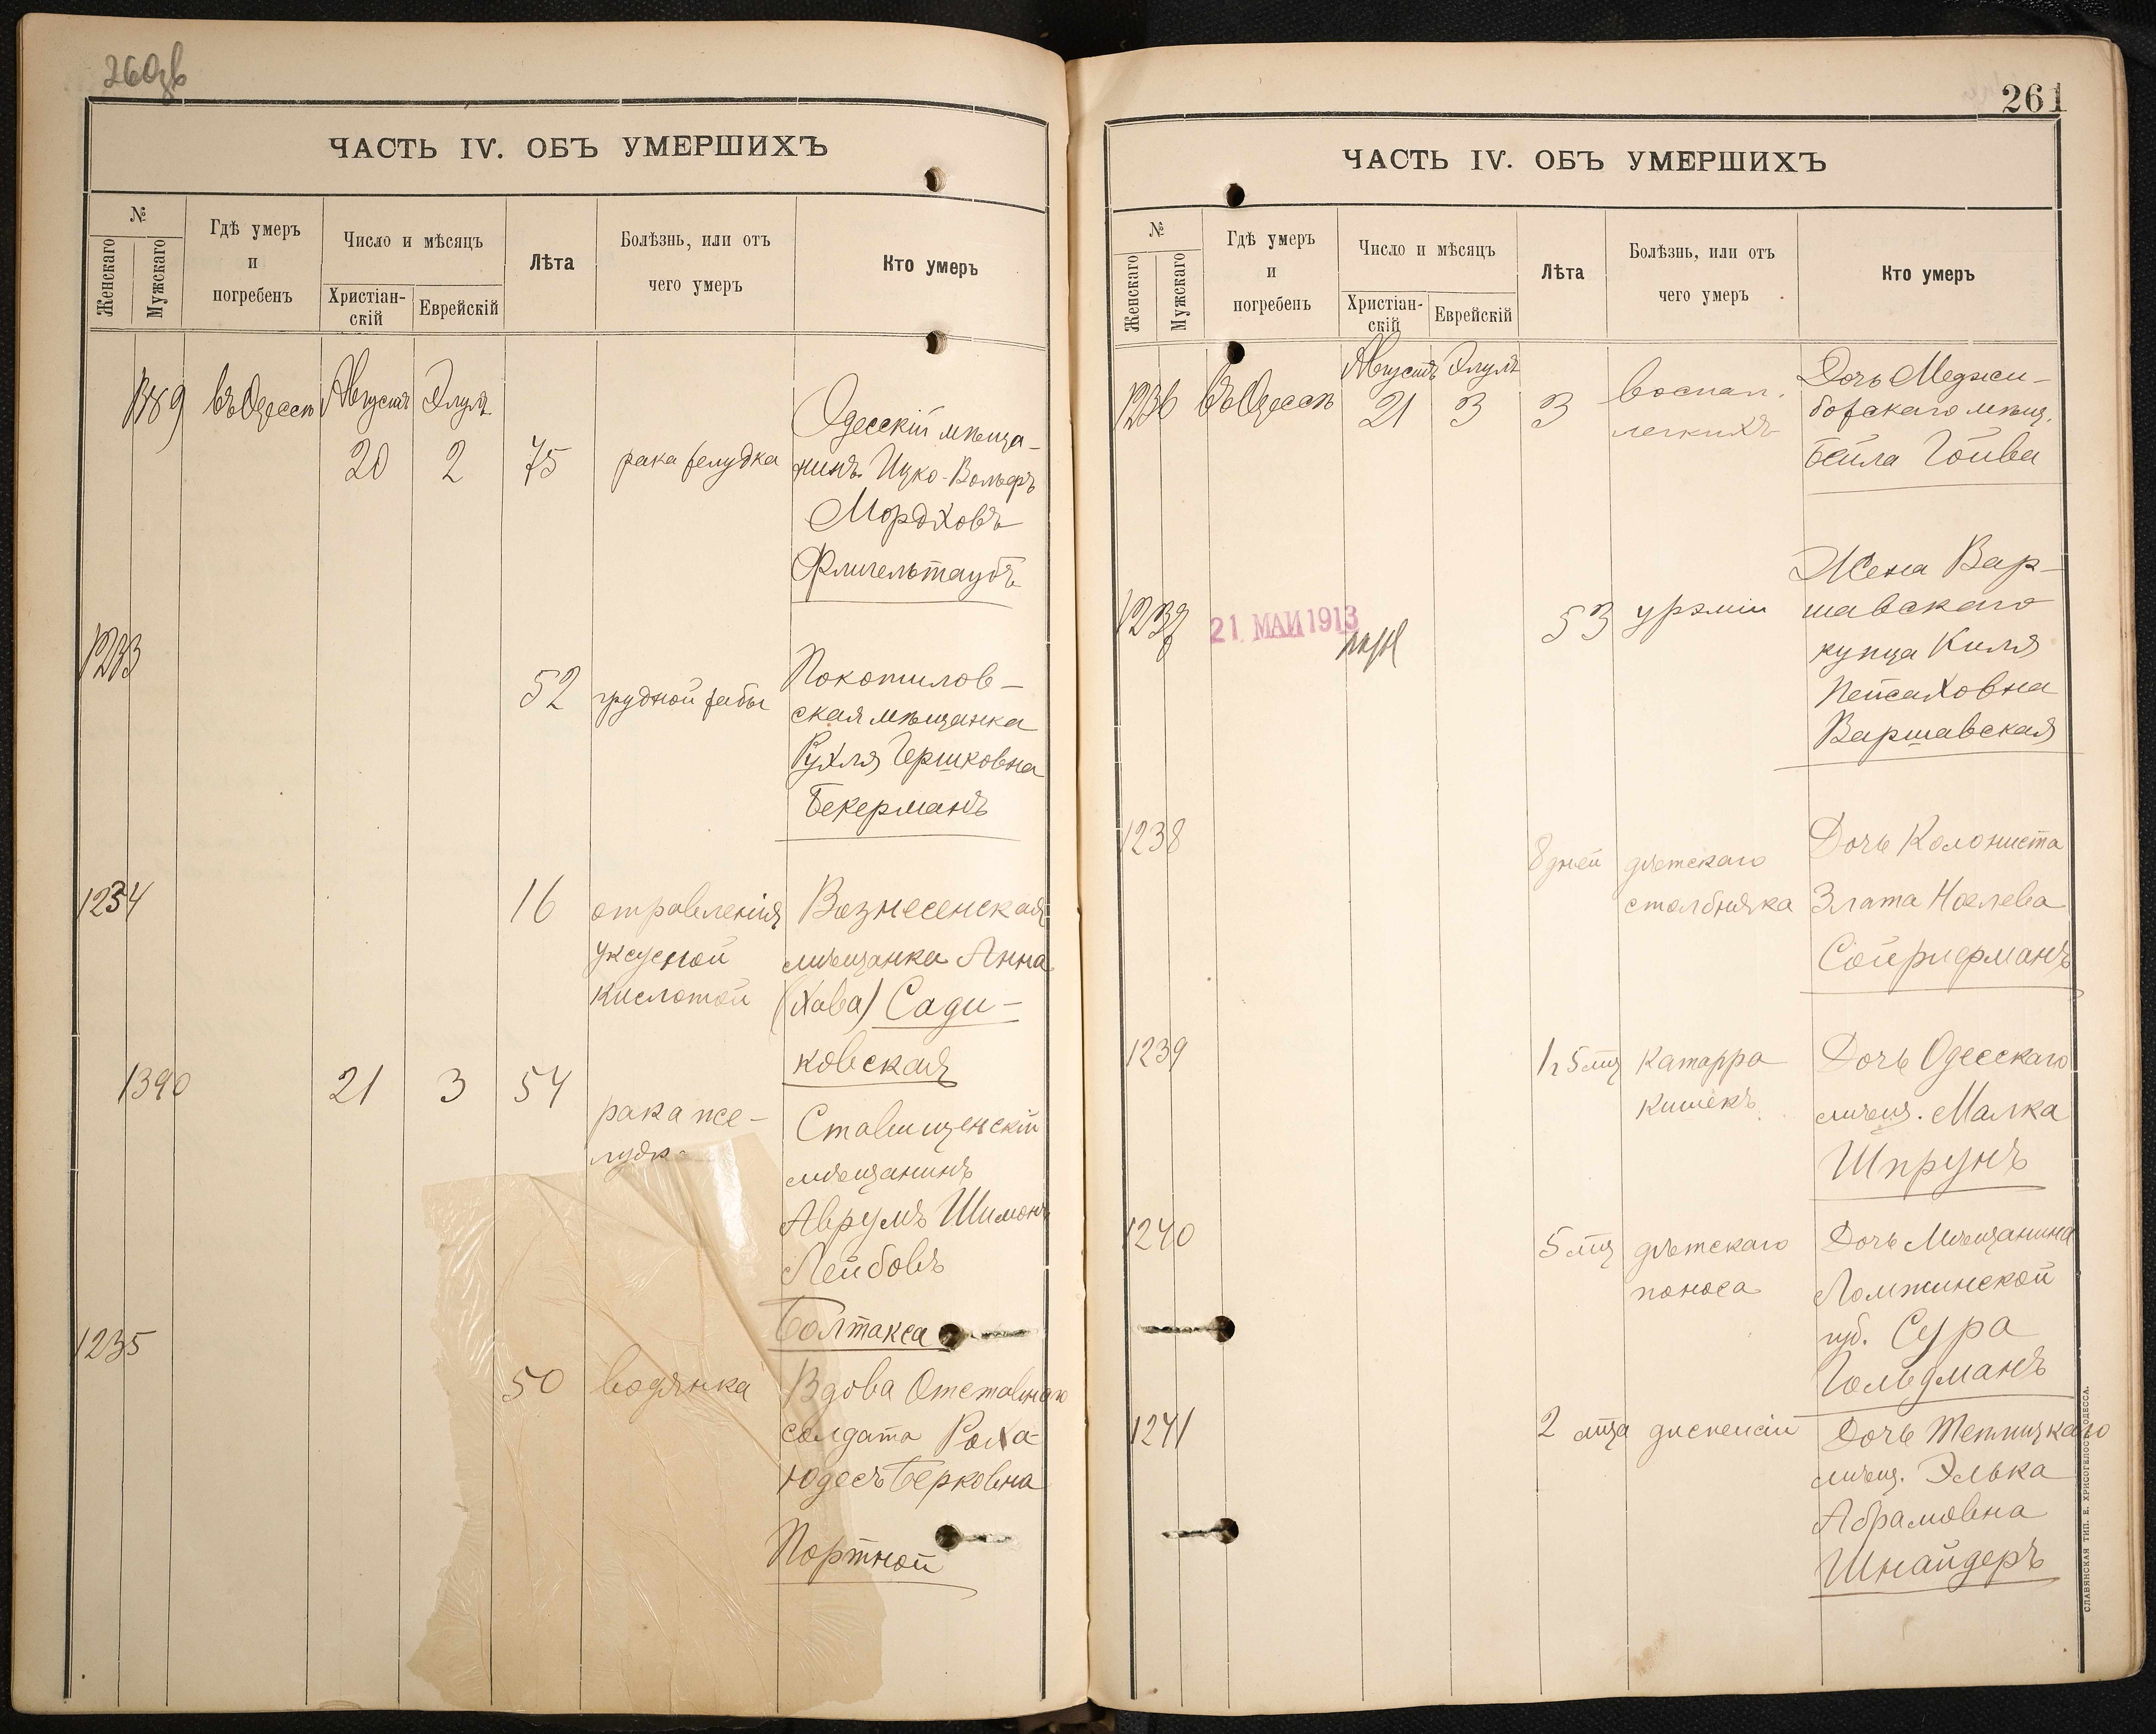 260об
ЧАСТЬ IV. ОБЪ УМЕРШИХЪ
№
Женскаго
Мужскаго
Гдѣ умеръ
и
погребенъ
Число и мѣсяцъ
Христіан-
скій
Еврейскій
Лѣта
Болѣзнь, или отъ
чего умеръ
Кто умеръ
1389 въ Одессѣ Августъ Элулъ
20 2 75 рака желудка
Одесскій мѣща-
нинъ Ицко-Вольфъ
Мордховъ
Флигельтаубъ
1233
52 грудной жабы
Покотилов-
ская мѣщанка
Рухля Гершковна
Бекерманъ
1234 16 отравленія
уксусной
кислотой
Вознесенская
мѣщанка Анна
(Хава) Сади-
ковская
1390 21 3 54
рака же-
лудк
Ставищенскій
мѣщанинъ
Аврумъ Шимонъ
Лейбовъ
Болтакса
1235
50 водянка
Вдова Отставнаго
солдата Роха-
Юдесъ Берковна
Портной
261
ЧАСТЬ IV. ОБЪ УМЕРШИХЪ
№
Женскаго
Мужскаго
Гдѣ умеръ
и
погребенъ
Число и мѣсяцъ
Христіан-
скій
Еврейскій
Лѣта
Болѣзнь, или отъ
чего умеръ
Кто умеръ
1236 въ Одессѣ Августъ Элулъ
21 3 3 воспал.
легкихъ
Дочь Меджи-
божскаго мѣщ.
Бейла Гойва
1237 21 МАИ 1913
53 уреміи
Жена Вар-
шавскаго
купца Киля
Пейсаховна
Варшавская
1238
8 дней дѣтскаго
столбняка
Дочь Колониста
Злата
Сойфферманъ
1239
Катарра
кишекъ
Дочь Одесскаго
мѣщ. Малка
Шпрунъ
1240
5 мц дѣтскаго
поноса
Дочь Мѣщанина
Ломжинской
губ. Сура
Гольдманъ
1241 2 мца диспепсіи
Дочь Теплицкаго
мѣщ. Элька
Абрамовна
Шнайдеръ
СЛАВЯНСКАЯ ТИП. Е. ХРИСОГЕЛОСЪ, ОДЕССА.